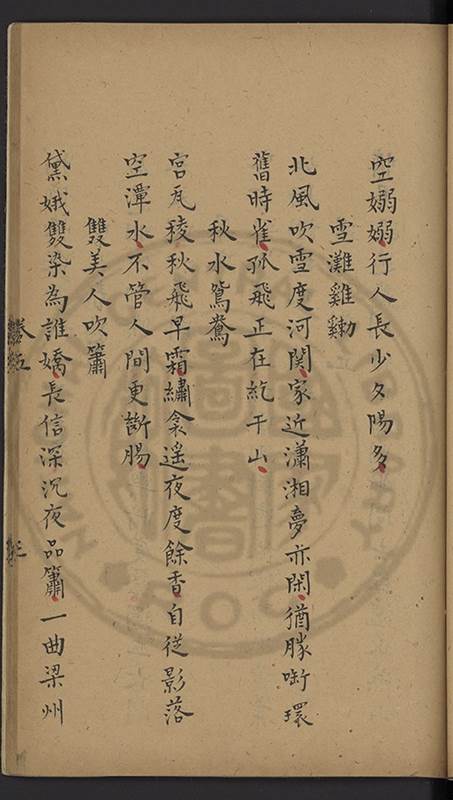 空嫋嫋行人長少夕陽多
雪灘雞鷘
北風吹雪度河関家近瀟湘夢亦閑猶勝啣環
舊時雀孤飛正在紇干山
秋水鴛鴦
宮瓦稜秋飛早霜繡衾遥夜度餘香自従影落
空潭水不管人間更斷腸
雙美人吹簫
黛娥雙染為誰嬌長信深沉夜品簫一曲梁州
卷五